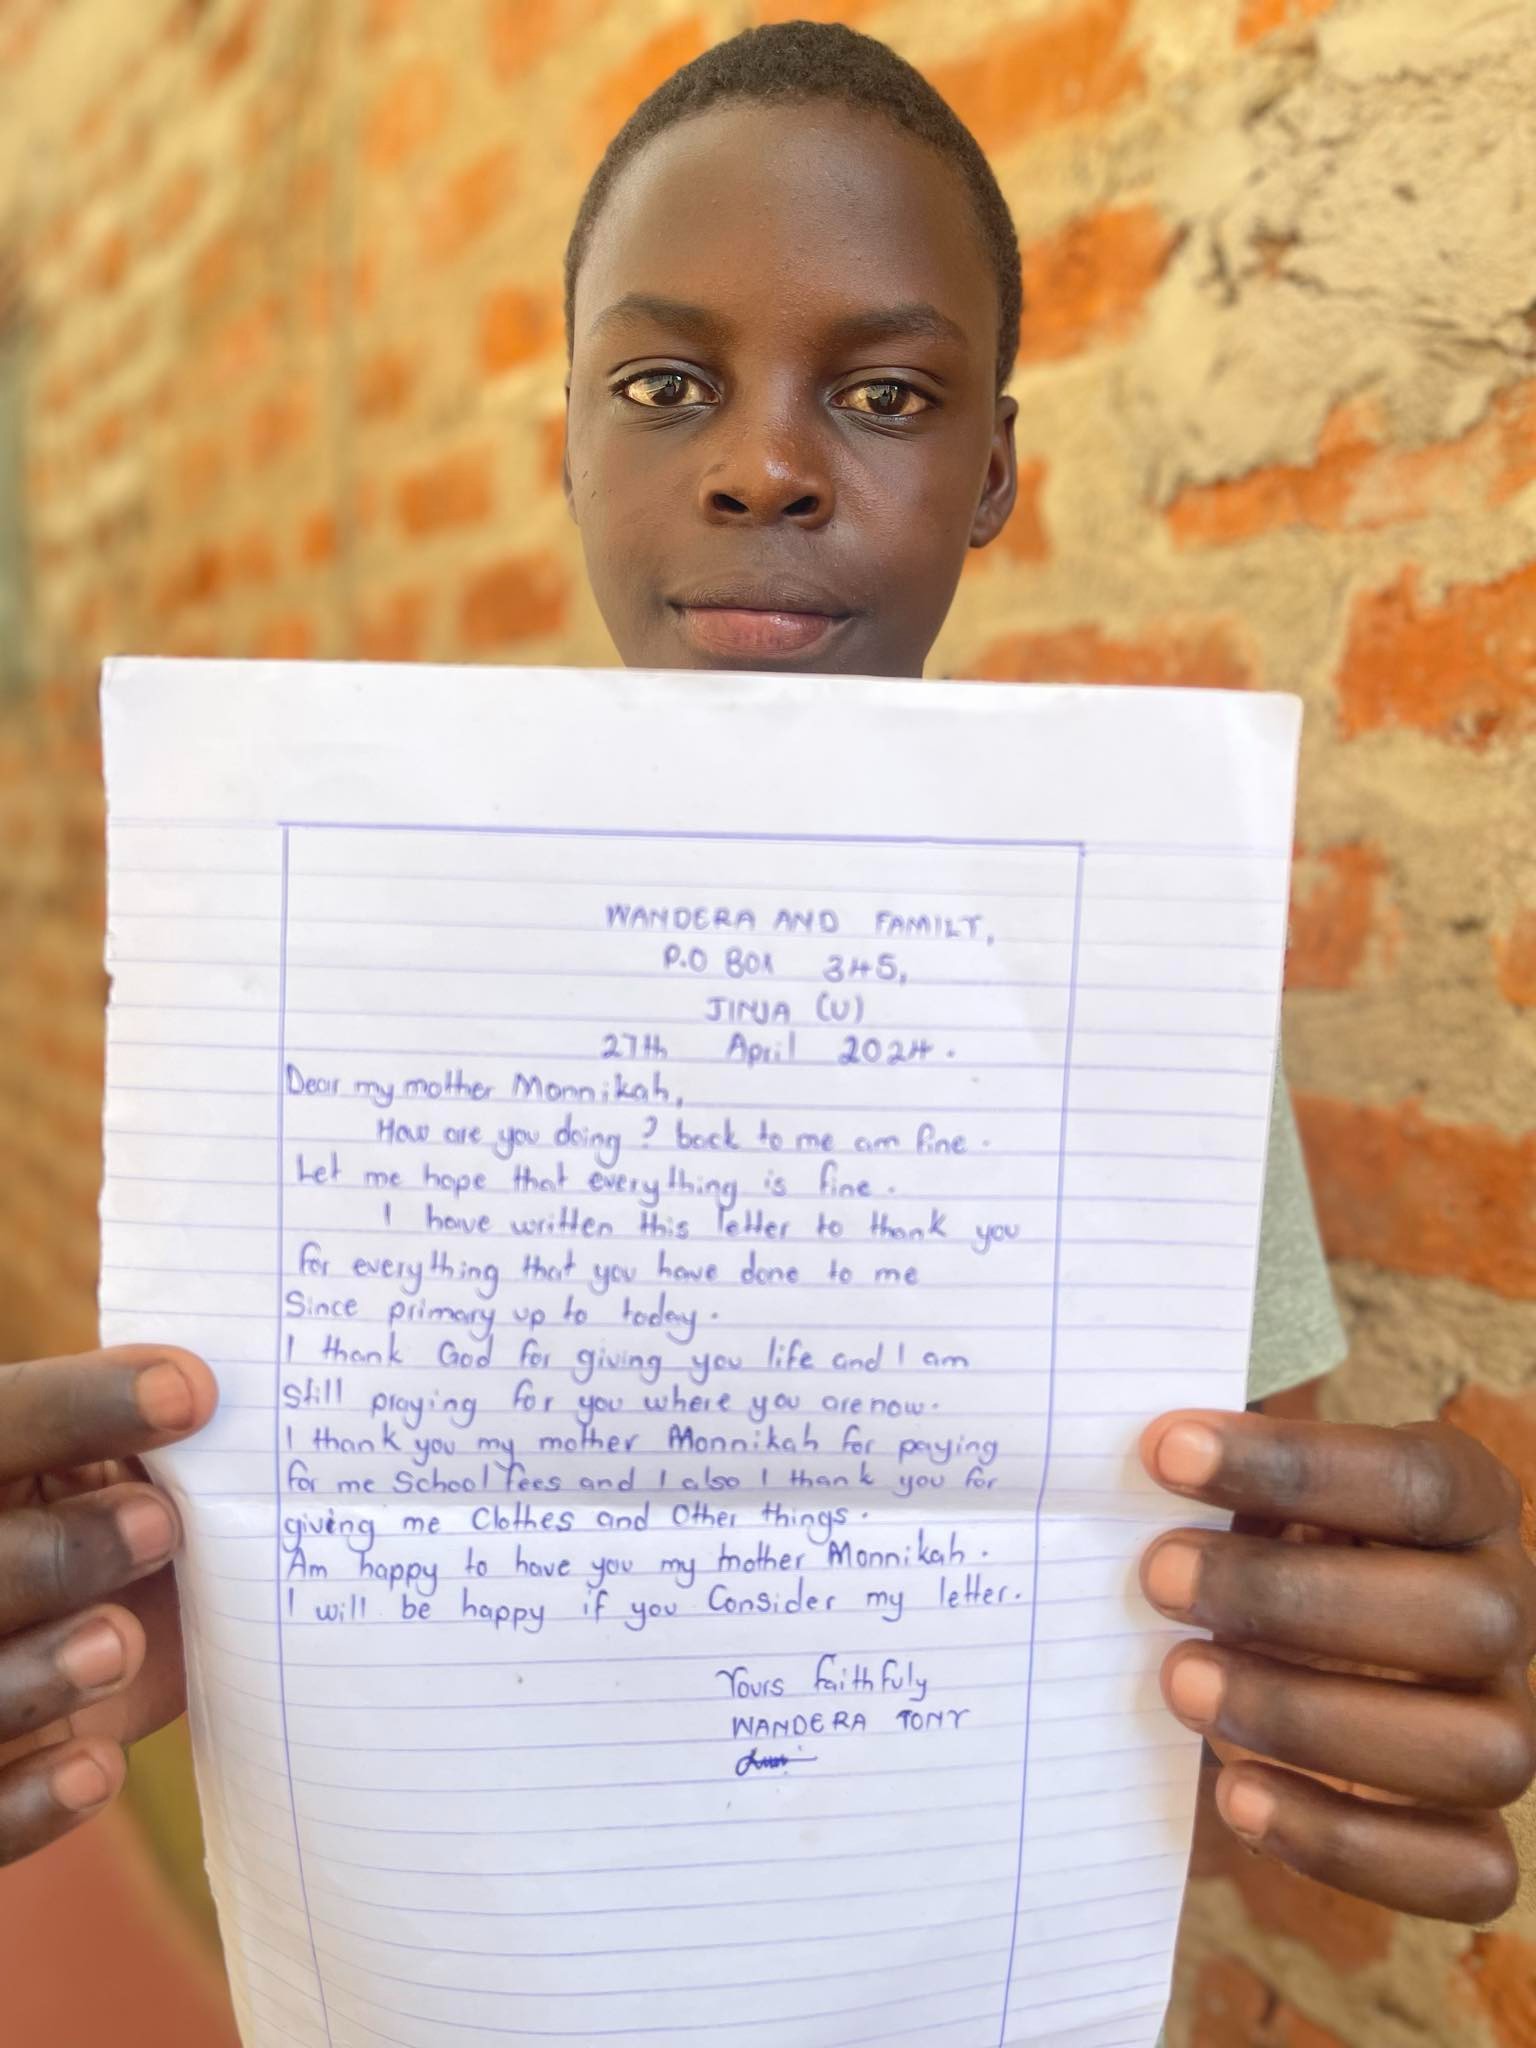 WANDERA AND FAMILY,
P.O BOX 345,
JINJA (U)
27th April 2024.
Dear my mother Monnikah,
How are you doing? back to me am fine.
Let me hope that everything is fine.
I have written this letter to thank you
for everything that you have done to me
Since primary up to today.
I thank God for giving you life and I am
still praying for you where you are now.
I thank you my mother Monnikah for paying
for me School fees and I also I thank you for
giving me Clothes and Other things.
Am happy to have you my mother Monnikah.
I will be happy if you Consider my letter.
Yours faithfuly
WANDERA TONY